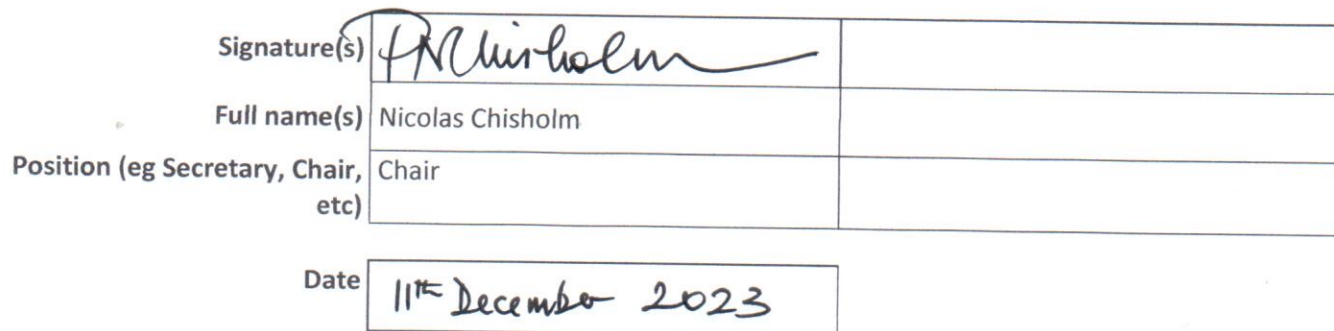 Signature(s) PNChisholm
Full name(s) Nicolas Chisholm
Position (eg Secretary, Chair, Chair
etc)
Date 11th December 2023